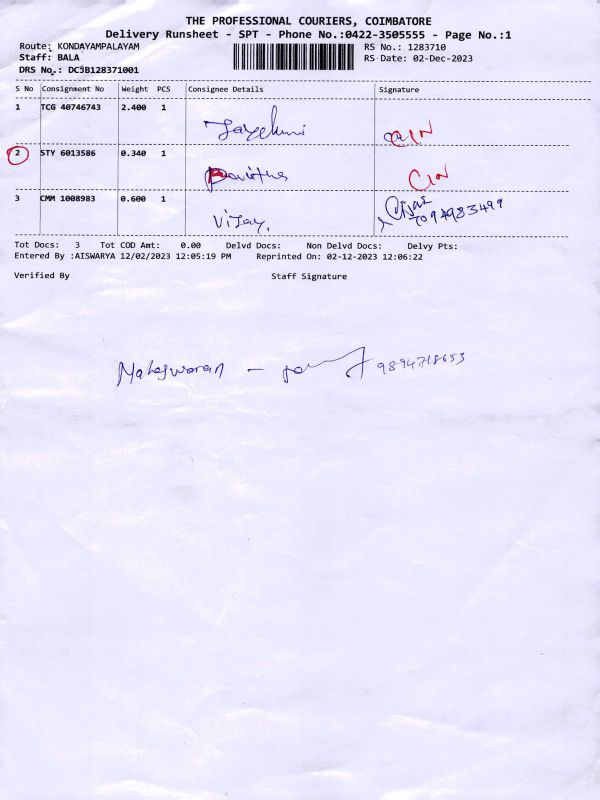 THE PROFESSIONAL COURIERS, COIMBATORE
Delivery Runsheet - SPT - Phone No.:0422-3505555 - Page No.:1
Route: KONDAYAMPALAYAM RS No.: 1283710
Staff: BALA RS Date: 02-Dec-2023
DRS No.: DCJB128371001
S No Consignment No Weight PCS Consignee Details Signature
1 TCG 40746743 2.400 1
CIN
2 STY 6013586 0.340 1
Pavithra CIN
3 CMM 1008983 0.600 1
Vijay.
Tot Docs: 3 Tot COD Amt: 0.00 Delvd Docs: Non Delvd Docs: Delvy Pts:
Entered By :AISWARYA 12/02/2023 12:05:19 PM Reprinted On: 02-12-2023 12:06:22
Verified By Staff Signature
Maheswaran - 9894718653